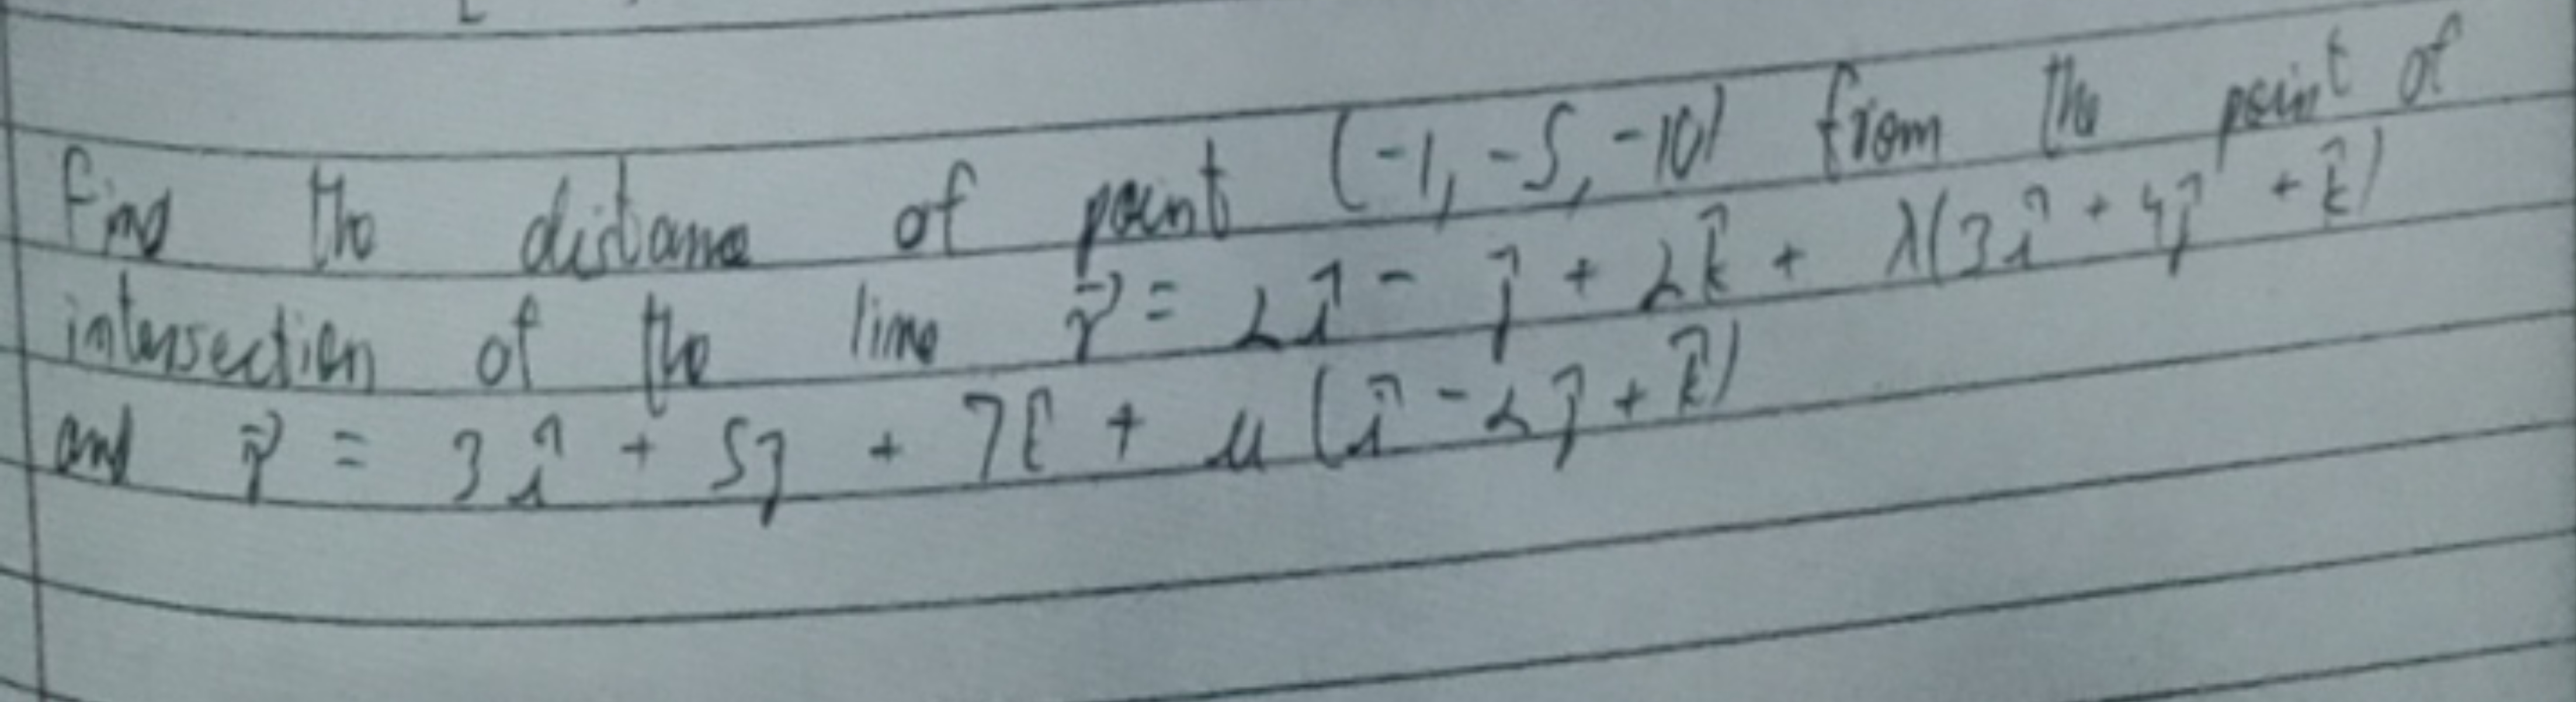 Find the distance of point (-1, -5, -10) from the point of
intersection of the line r⃗ = 2î - ĵ + 2k̂ + λ(3î + 4ĵ + k̂)
and r⃗ = 3î + 5ĵ + 7k̂ + μ(î - 2ĵ + k̂)